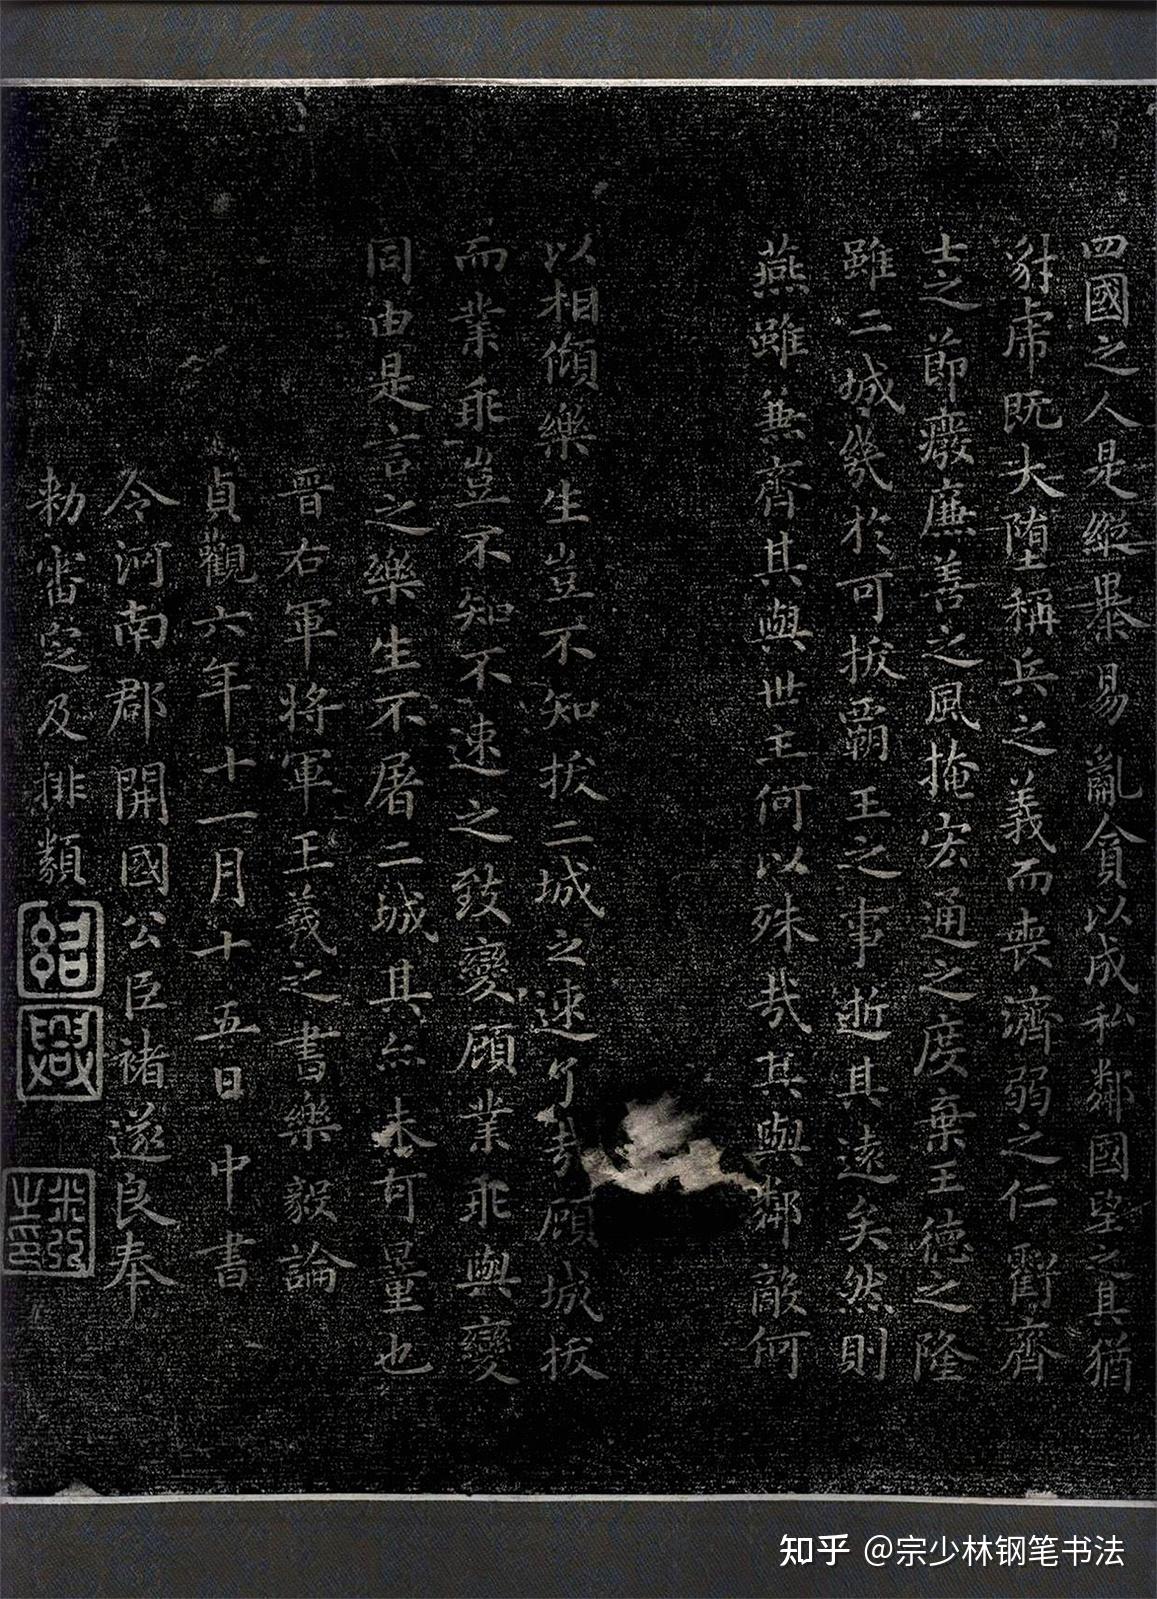 四國之人是縱暴易亂貪以成私鄰國望之其猶
豺虎既大墮稱兵之義而喪濟弱之仁虧齊
士之節廢廉善之風掩宏通之度棄王德之隆
雖二城幾於可拔霸王之事逝其遠矣然則
燕雖兼齊其與世主何以殊哉其與鄰敵何
以相傾樂生豈不知拔二城之速了哉顧城拔
而業乖豈不知不速之致變顧業乖與變
同由是言之樂生不屠二城其亦未可量也
晉右軍將軍王羲之書樂毅論
貞觀六年十一月十五日中書
令河南郡開國公臣褚遂良奉
勑審定及排類
紹
興
米芾
之印
知乎 @宗少林钢笔书法